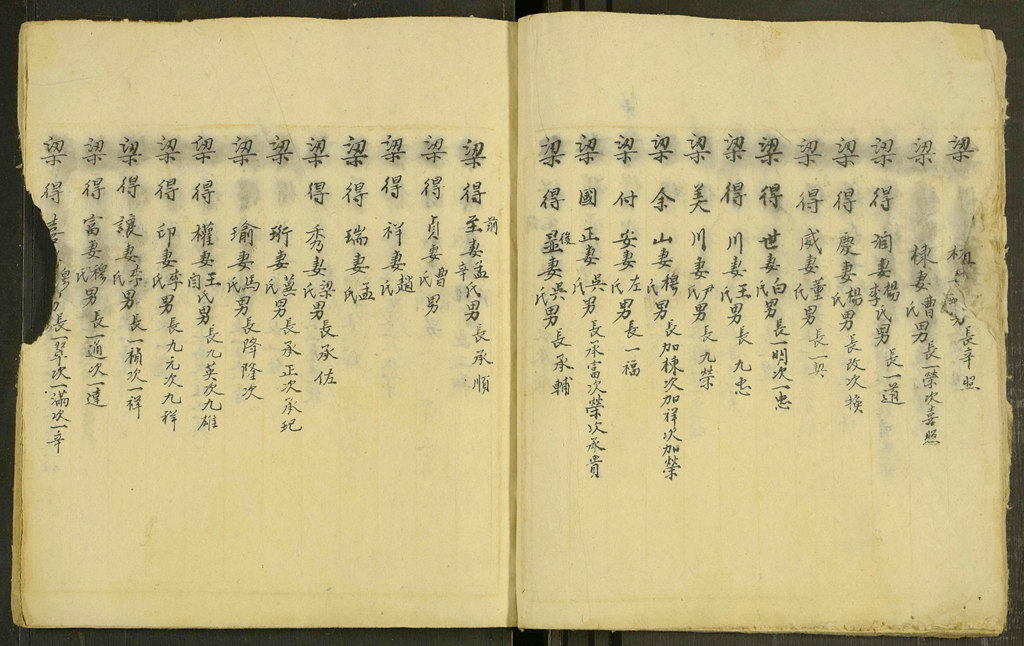 梁 長幸照
梁 棟妻曹氏男長一榮次喜照
梁得 妻楊李氏男長一道
梁得慶妻楊氏男長改次換
梁得威妻董氏男長一契
梁得世妻白氏男長一明次一忠
梁得川妻王氏男長九忠
梁美川妻尹氏男長九榮
梁余山妻穆氏男長加棟次加祥次加榮
梁付安妻左氏男長一福
梁國正妻吳氏男長承富次榮次承貴
梁得显後妻吳氏男長承輔
梁得至前妻孟辛氏男長承順
梁得貞妻曹氏男
梁得祥妻趙氏
梁得瑞妻孟氏
梁得秀妻梁氏男長承佐
梁 珩妻孟氏男長承正次承玘
梁 瑜妻馮氏男長降次隆次
梁得權妻王氏男長九英次九雄
梁得印妻李氏男長九元次九祥
梁得讓妻李氏男長一楨次一祥
梁得富妻穆氏男長一通次一達
梁得喜 長一翠次一滿次一辛